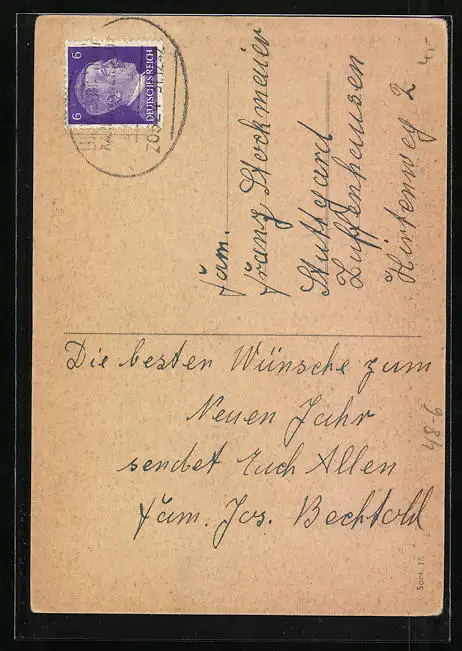 Die besten Wünsche zum
Neuen Jahr
sendet Euch Allen
Fam. Jos. Bechtold
Fam.
Franz Stockmaier
Stuttgard
Zuffenhausen
Hirtenweg 2
DEUTSCHES REICH
6
6
4.-
48-6
Sort. 15